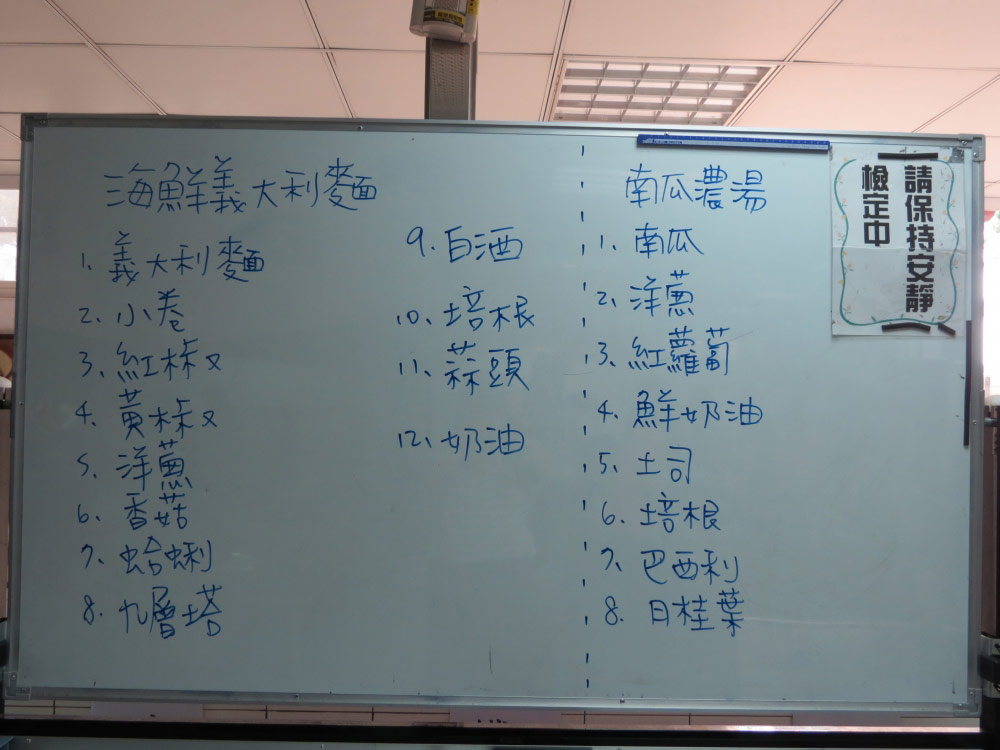 海鮮義大利麵
1. 義大利麵
2. 小卷
3. 紅椒
4. 黃椒
5. 洋蔥
6. 香菇
7. 蛤蜊
8. 九層塔
9. 白酒
10. 培根
11. 蒜頭
12. 奶油
南瓜濃湯
1. 南瓜
2. 洋蔥
3. 紅蘿蔔
4. 鮮奶油
5. 土司
6. 培根
7. 巴西利
8. 月桂葉
請保持安靜
檢定中